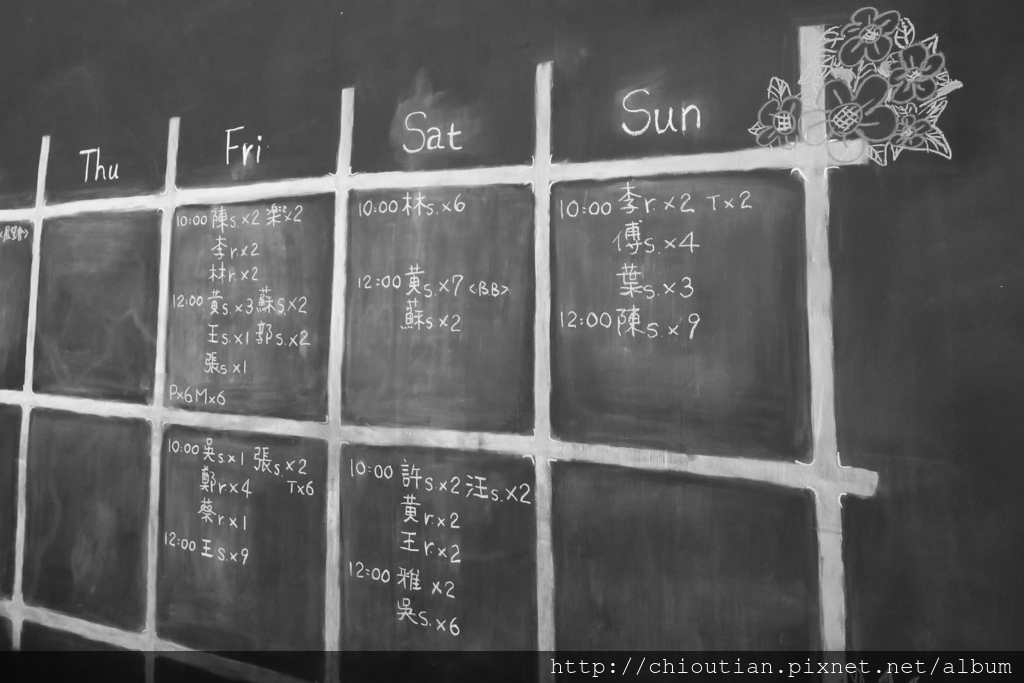 Thu
Fri
Sat
Sun
10:00 陳s.x2 樂x2
李rx2
林r.x2
12:00 黃s.x3 蘇s.x2
王s.x1 郭s.x2
張sx1
Px6 Mx6
10:00 林s.x6
12:00 黃s.x7 <B.B>
蘇sx2
10:00 李r.x2 Tx2
傅s.x4
葉s.x3
12:00 陳s.x9
10:00 吳sx1 張s.x2
鄭rx4 Tx6
蔡rx1
12:00 王s.x9
10:00 許s.x2 汪s.x2
黃r.x2
王r.x2
12:00 雅 x2
吳s.x6
http://chioutian.pixnet.net/album